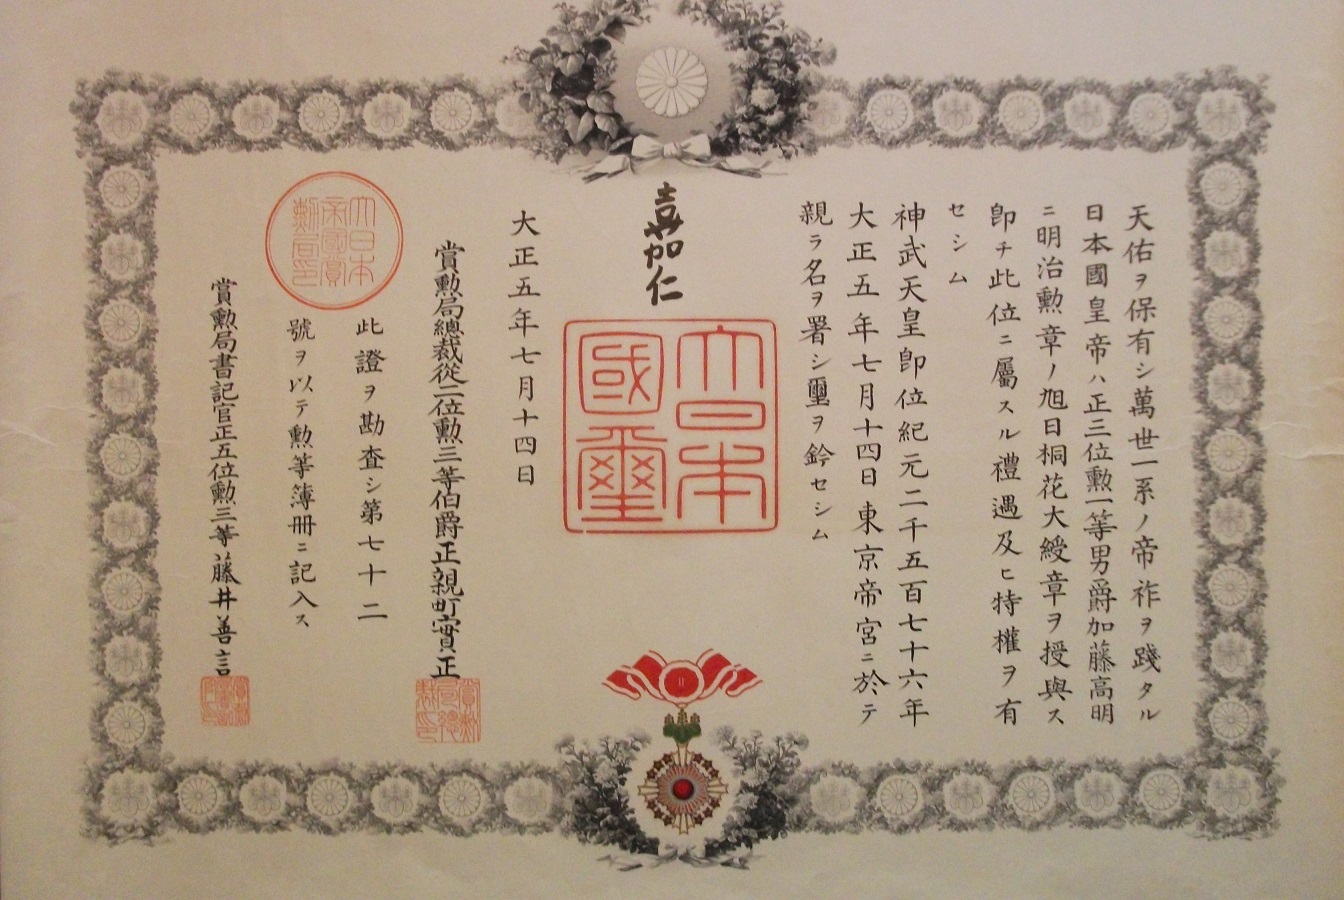 天佑ヲ保有シ萬世一系ノ帝祚ヲ踐タル
日本國皇帝ハ正三位勲一等男爵加藤高明
ニ明治勲章ノ旭日桐花大綬章ヲ授與ス
卽チ此位ニ屬スル禮遇及ヒ特權ヲ有
セシム
神武天皇卽位紀元二千五百七十六年
大正五年七月十四日東京帝宮ニ於テ
親ラ名ヲ署シ璽ヲ鈐セシム
嘉仁
大日本
國璽
大正五年七月十四日
賞勲局總裁從二位勲三等伯爵正親町實正
此證ヲ勘査シ第七十二
號ヲ以テ勲等簿冊ニ記入ス
大日本
帝國賞
勲局印
賞勲局書記官正五位勲三等藤井善言